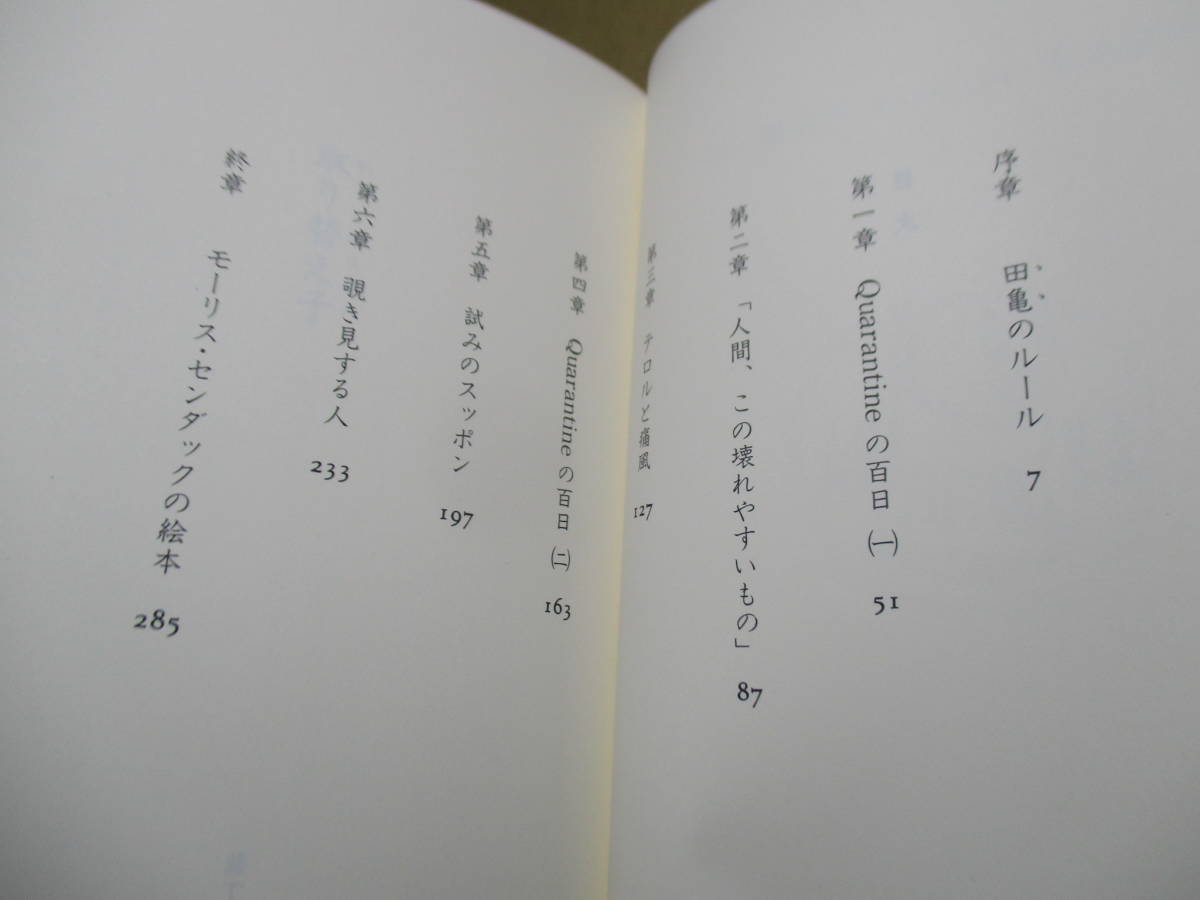 序章 田亀のルール 7
第一章 Quarantineの百日㈠ 51
第二章 「人間、この壊れやすいもの」 87
第三章 テロルと痛風 127
第四章 Quarantineの百日㈡ 163
第五章 試みのスッポン 197
第六章 覗き見する人 233
終章 モーリス・センダックの絵本 285